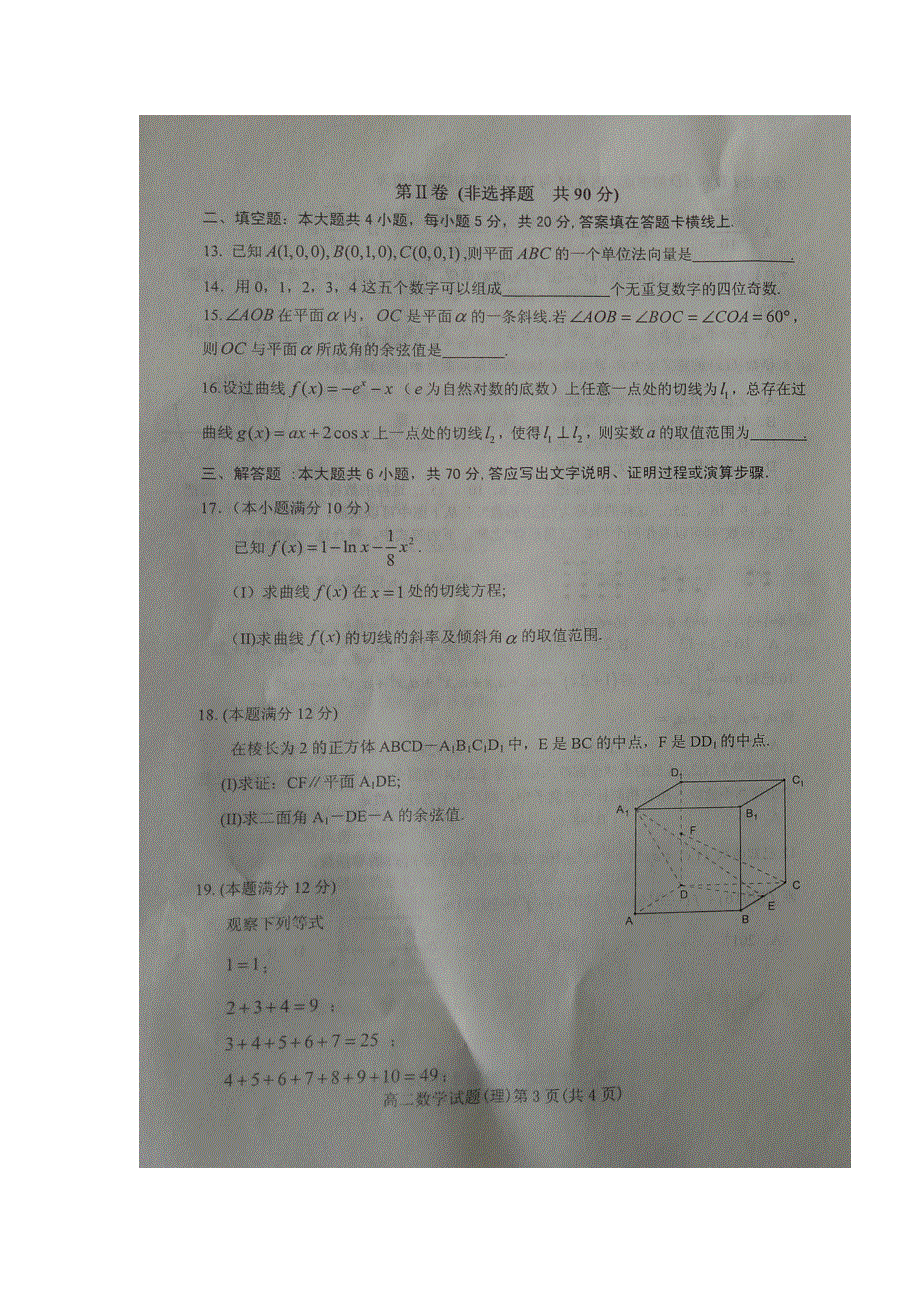 第Ⅱ卷 (非选择题 共90分)
二、填空题：本大题共4小题，每小题5分，共20分,答案填在答题卡横线上.
13. 已知A(1,0,0),B(0,1,0),C(0,0,1),则平面ABC的一个单位法向量是____________.
14．用0，1，2，3，4这五个数字可以组成____________个无重复数字的四位奇数.
15.∠AOB在平面α内，OC是平面α的一条斜线.若∠AOB=∠BOC=∠COA=60°，
则OC与平面α所成角的余弦值是________.
16.设过曲线f(x)=−eˣ−x（e为自然对数的底数）上任意一点处的切线为l₁，总存在过
曲线g(x)=ax+2cosx上一点处的切线l₂，使得l₁⊥l₂，则实数a的取值范围为_______.
三、解答题 :本大题共6小题，共70分,答应写出文字说明、证明过程或演算步骤.
17．（本小题满分10分）
已知f(x)=1−lnx−1/8x².
（I）求曲线f(x)在x=1处的切线方程;
（II)求曲线f(x)的切线的斜率及倾斜角α的取值范围.
18. (本题满分12分)
在棱长为2的正方体ABCD－A₁B₁C₁D₁中，E是BC的中点，F是DD₁的中点.
(I)求证：CF∥平面A₁DE;
(II)求二面角A₁－DE－A的余弦值.
D₁
C₁
A₁
B₁
F
D
C
E
A
B
19. (本题满分12分)
观察下列等式
1=1；
2+3+4=9；
3+4+5+6+7=25；
4+5+6+7+8+9+10=49；
高二数学试题(理)第3页(共4页)